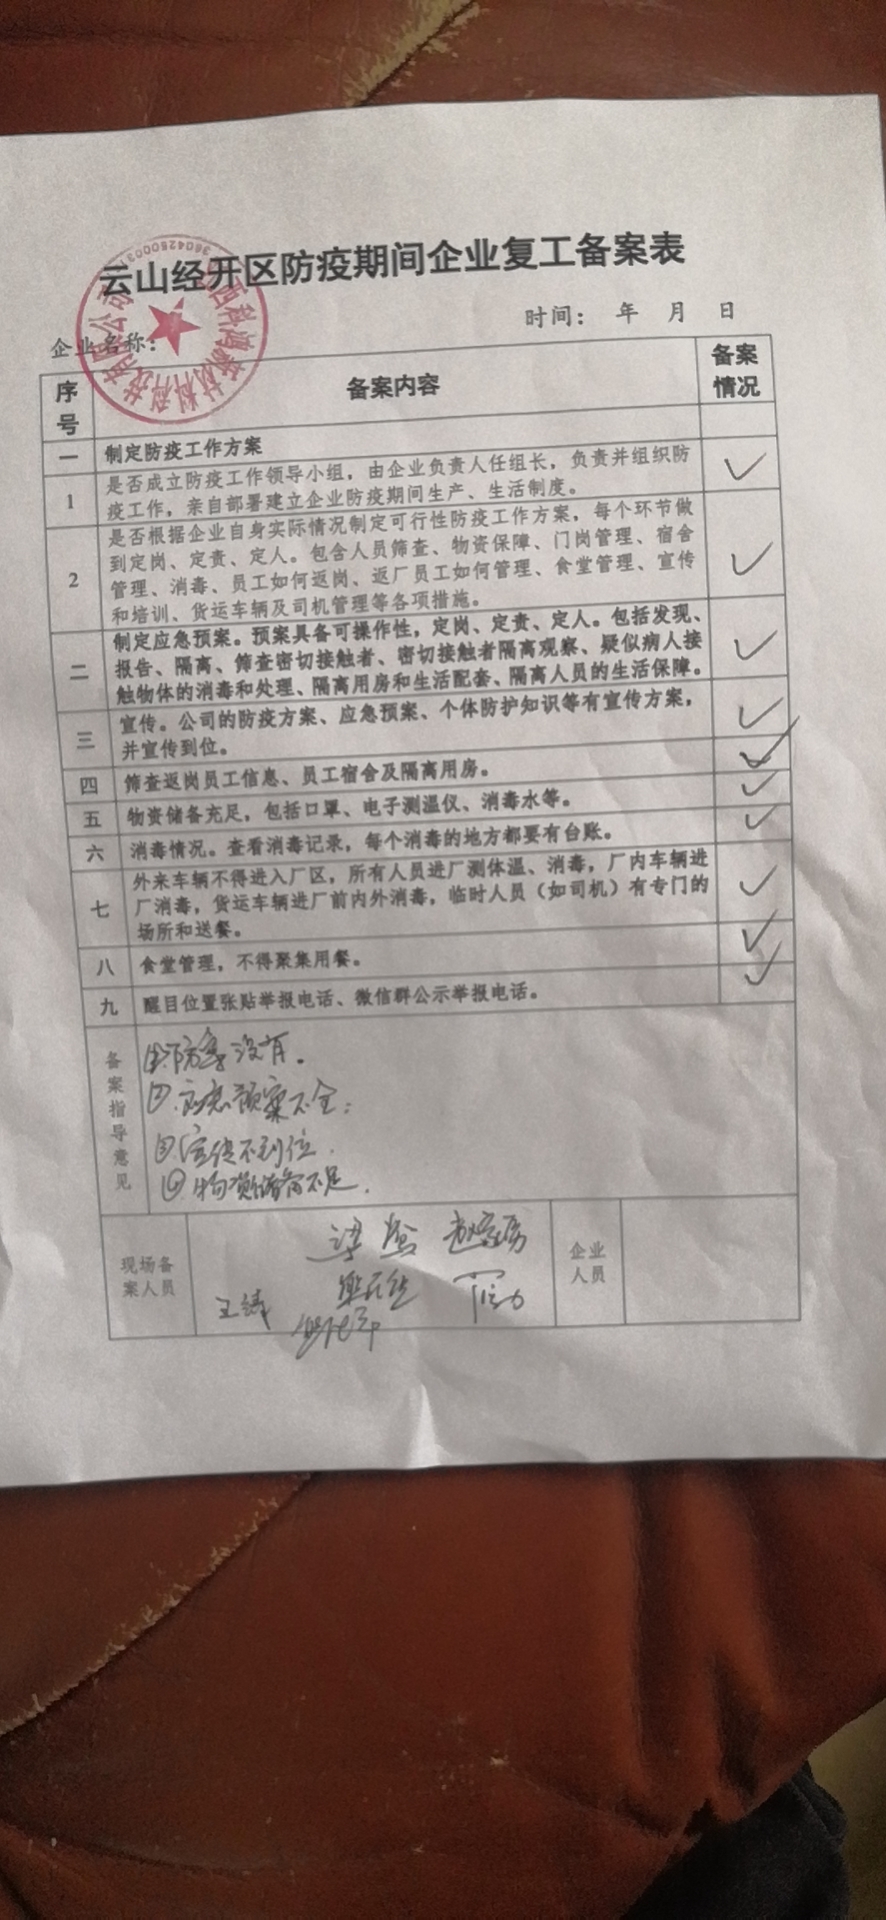 云山经开区防疫期间企业复工备案表
时间： 年 月 日
企业名称：
序号 备案内容 备案情况
一 制定防疫工作方案
1 是否成立防疫工作领导小组，由企业负责人任组长，负责并组织防
疫工作，亲自部署建立企业防疫期间生产、生活制度。
2 是否根据企业自身实际情况制定可行性防疫工作方案，每个环节做
到定岗、定责、定人。包含人员筛查、物资保障、门岗管理、宿舍
管理、消毒、员工如何返岗、返厂员工如何管理、食堂管理、宣传
和培训、货运车辆及司机管理等各项措施。
二 制定应急预案。预案具备可操作性，定岗、定责、定人。包括发现、
报告、隔离、筛查密切接触者、密切接触者隔离观察、疑似病人接
触物体的消毒和处理、隔离用房和生活配套、隔离人员的生活保障。
三 宣传。公司的防疫方案、应急预案、个体防护知识等有宣传方案，
并宣传到位。
四 筛查返岗员工信息、员工宿舍及隔离用房。
五 物资储备充足，包括口罩、电子测温仪、消毒水等。
六 消毒情况。查看消毒记录，每个消毒的地方都要有台账。
七 外来车辆不得进入厂区，所有人员进厂测体温、消毒，厂内车辆进
厂消毒，货运车辆进厂前内外消毒，临时人员（如司机）有专门的
场所和送餐。
八 食堂管理，不得聚集用餐。
九 醒目位置张贴举报电话、微信群公示举报电话。
备案指导意见
没有.
②.应急预案不全；
③宣传不到位.
④物资储备不足.
现场备案人员
王涛
企业人员